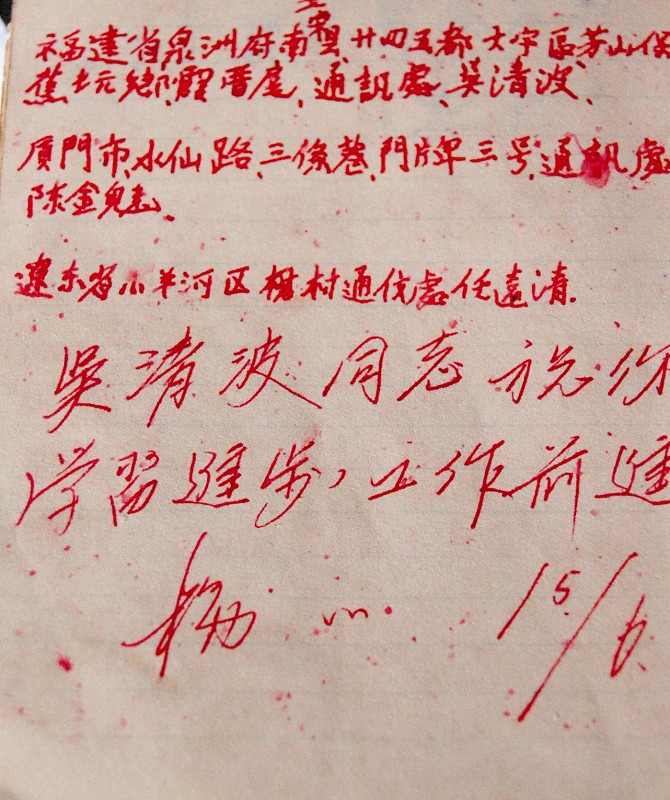 福建省泉洲府南安縣廿四五都大宇區芳山保
蕉坑鄉 厝通訊處、吳清波、
厦門市、水仙路、三條巷、門牌三号、通訊處
陈金魁、
遼东省小羊河区 村通信處任遠清.
吳清波同志 祝你
学習進步,工作前進
楊 15/6